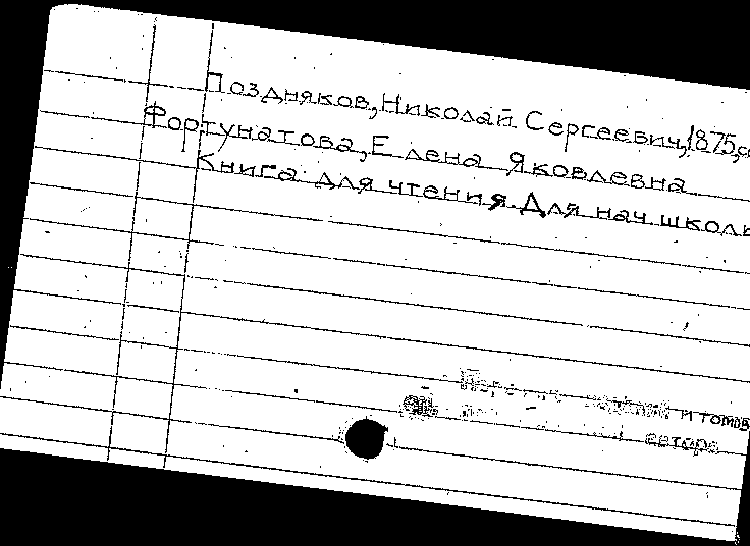 Поздняков, Николай Сергеевич, 1875, со
Фортунатова, Елена Яковлевна
Книга для чтения. Для нач. школы
и томов
автора